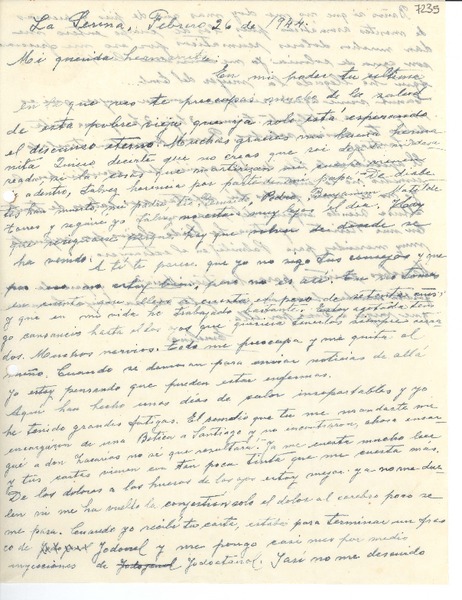 7235
La Serena, Febrero 26 de 1944.
Mi querida hermanita:
En mi poder tu última
que veo te preocupas mucho de la salud
de esta pobre vieja que ya solo está esperando
el descanso eterno. Muchas gracias mi buena herma
nita. Quiero decirte que no creas que soy
las cosas que martirizan
y adentro, talvez herencia por parte de mi papá. De diabe
tes han muerto mi padre, tío Pedro,
y seguiré yo talvez no está muy lejos el día. Hay
que resignarse porque hay que volver de donde se
ha venido.
A tí te parece que yo no sigo tus consejos y que
por eso no estoy bien pero no es así. Tu no tomas
en cuenta que llevo a cuesta el peso de setenta años
y que en mi vida he trabajado bastante. Estoy agotada, tengo
cansancio hasta el los ojos que quisiera tenerlos siempre cerra
dos. Muchos nervios. Todo me preocupa y me quita el
sueño. Cuando se demoran para enviar noticias de allá
yo estoy pensando que pueden estar enfermas.
Aquí han hecho unos días de calor insoportables y yo
he tenido grandes fatigas. El que tu me mandaste me
encargaron de una Botica a Santiago y no encontraron, ahora encar
gué a don Zacarías no sé que resultará. Ya me cuesta mucho leer
y tus cartas vienen con tan poca tinta que me cuesta mas.
De los dolores a los huesos de los ojos estoy mejor: ya no me due
len ni me ha vuelto la congestión, solo el dolor al cerebro poco se
me pasa. Cuando yo recibí tu carta, estaba para terminar un fras
co de Yodonal y me pongo casi mes por medio
inyecciones de Yodoatoxol. I así no me descuido